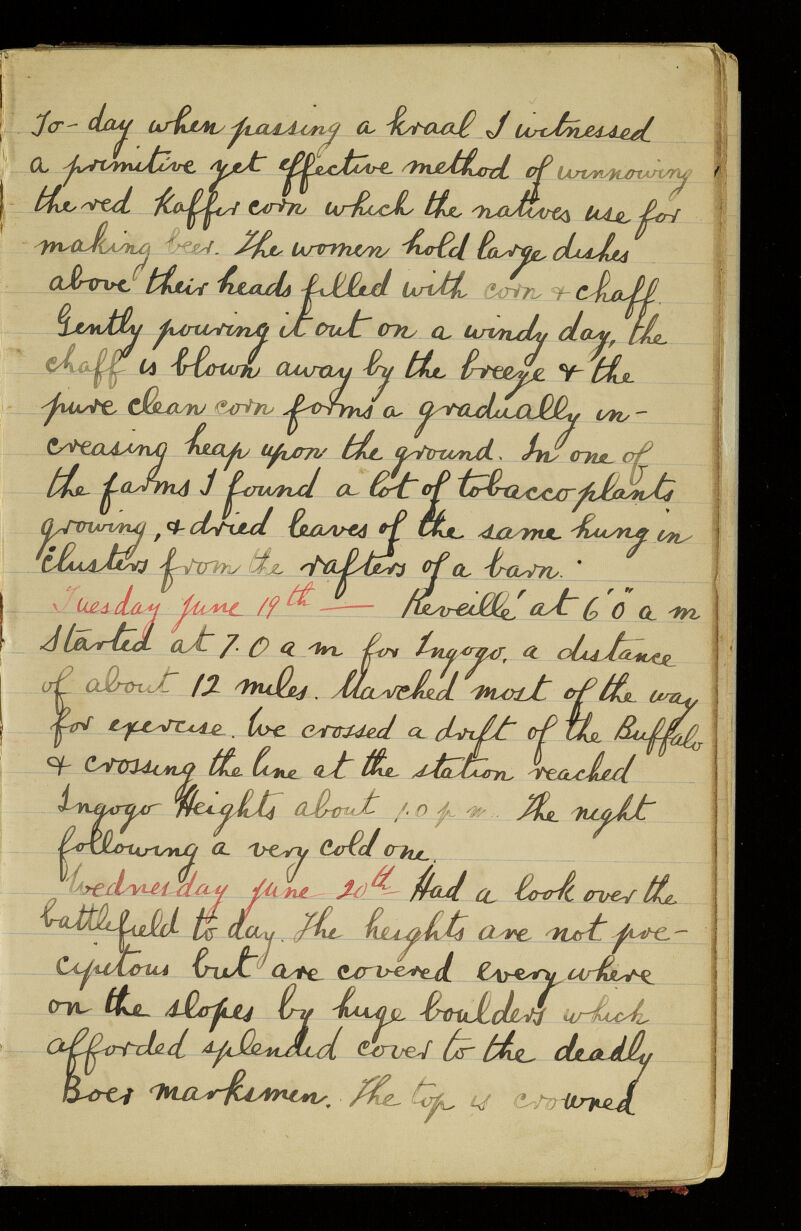 To-day when passing a kraal I witnessed
a primitive yet effective method of winnowing
the red Kaffir corn which the natives use for
making beer. The women hold large dishes
above their heads filled with corn & chaff.
Gently pouring it out on a windy day, the
chaff is blown away by the breeze & the
pure clean corn forms a gradually in-
creasing heap upon the ground. In one of
the farms I found a lot of tobacco plants
growing, & dried leaves of the same hung in
clusters from the rafters of a barn.
Tuesday June 19th — Reveillé at 6'0" a m
Started at 7.0 a m for Ingogo, a distance
of about 12 miles. Marched most of the way
for exercise. We crossed a drift of the Buffalo
& crossing the line at the station reached
Ingogo Heights about 1.0 p m. The night
following a very cold one.
Wednesday June 20th Had a look over the
battlefield to day. The heights are not pre-
cipitous but are covered every where
on the slopes by huge boulders which
afforded splendid cover to the deadly
Boer marksmen. The top is crowned